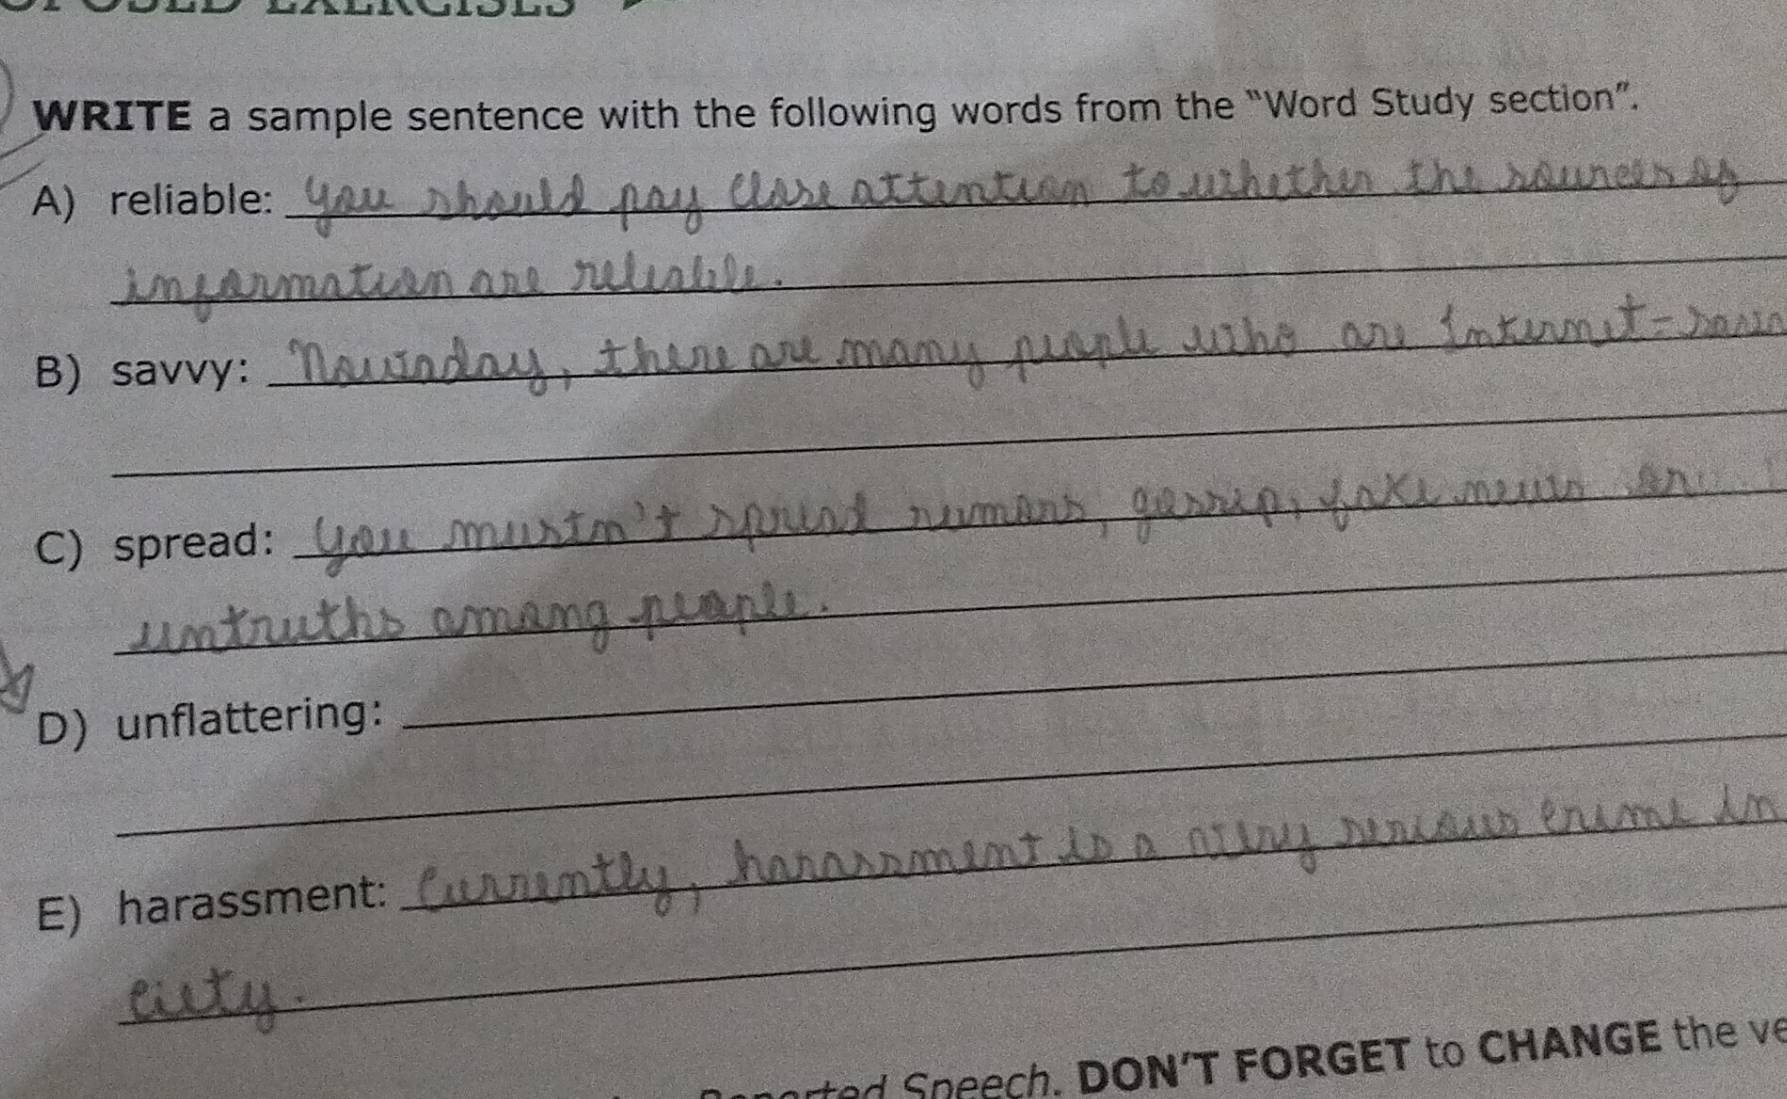 EXERCISES
WRITE a sample sentence with the following words from the “Word Study section”.
A) reliable: you should pay close attention to whether the sources of
information are reliable.
B) savvy: Nowaday, there are many people who are Internet-
C) spread: you mustn't spread rumors, gossip, fake news
untruths among people.
D) unflattering:
E) harassment: Currently, harassment is a very serious crime in
ciety.
Speech. DON'T FORGET to CHANGE the